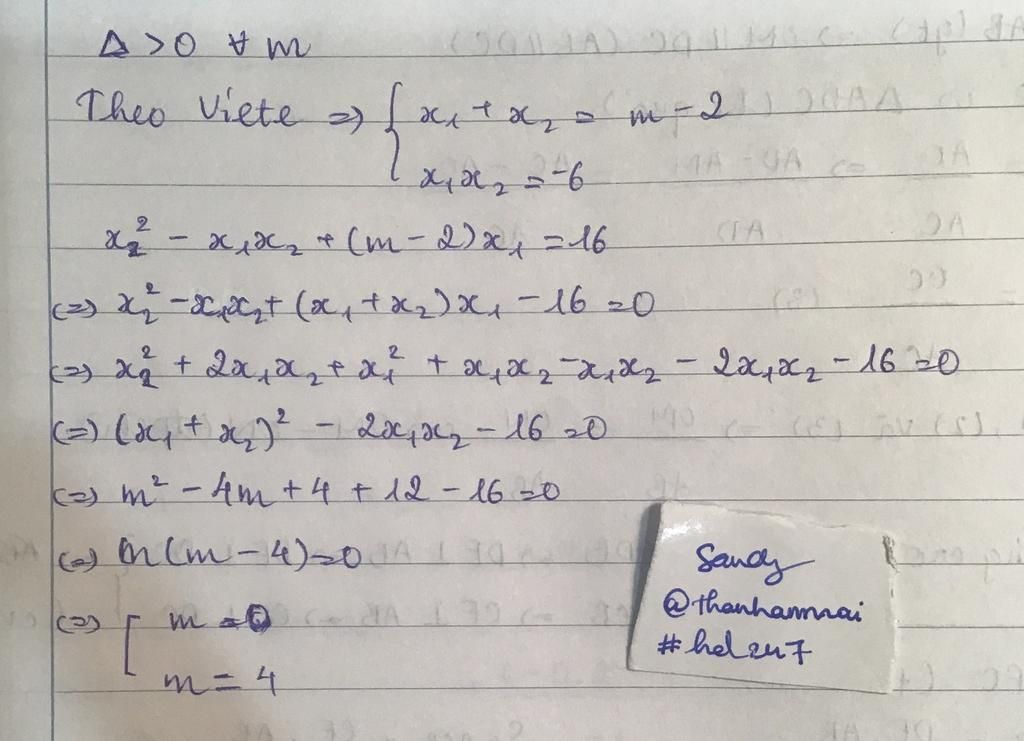 Δ > 0 ∀ m
Theo Viete => { x₁ + x₂ = m - 2
x₁x₂ = -6
x₂² - x₁x₂ + (m - 2)x₁ = 16
(=) x₂² - x₁x₂ + (x₁ + x₂)x₁ - 16 = 0
(=) x₂² + 2x₁x₂ + x₁² + x₁x₂ - x₁x₂ - 2x₁x₂ - 16 = 0
(=) (x₁ + x₂)² - 2x₁x₂ - 16 = 0
(=) m² - 4m + 4 + 12 - 16 = 0
(=) m(m - 4) = 0
(=) [ m = 0
m = 4
Sandy
#hel247